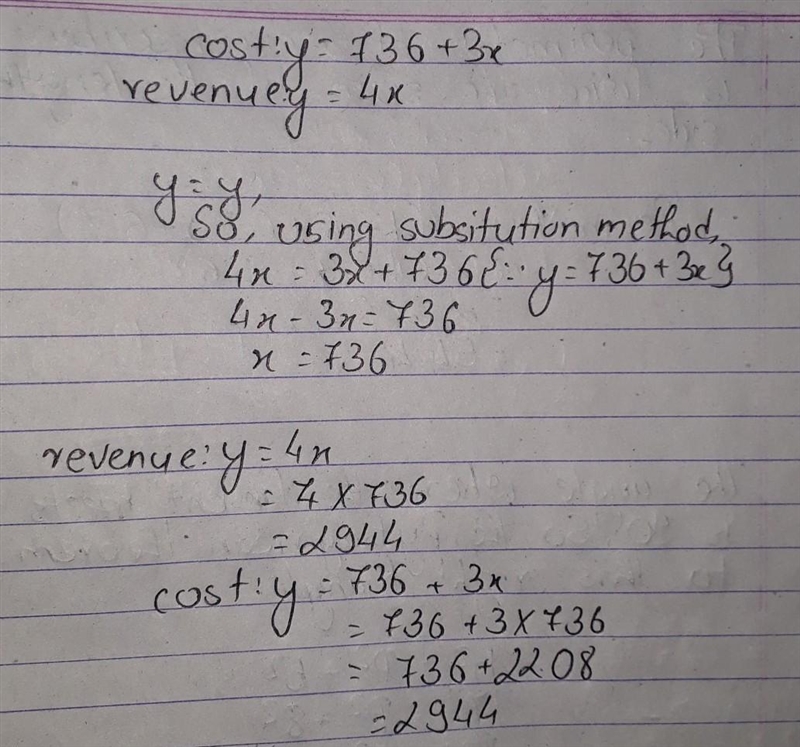 cost: y = 736 + 3x
revenue: y = 4x
y = y,
So, using subsitution method,
4x = 3x + 736 {∵ y = 736 + 3x}
4x - 3x = 736
x = 736
revenue: y = 4x
= 4 × 736
= 2944
cost: y = 736 + 3x
= 736 + 3 × 736
= 736 + 2208
= 2944